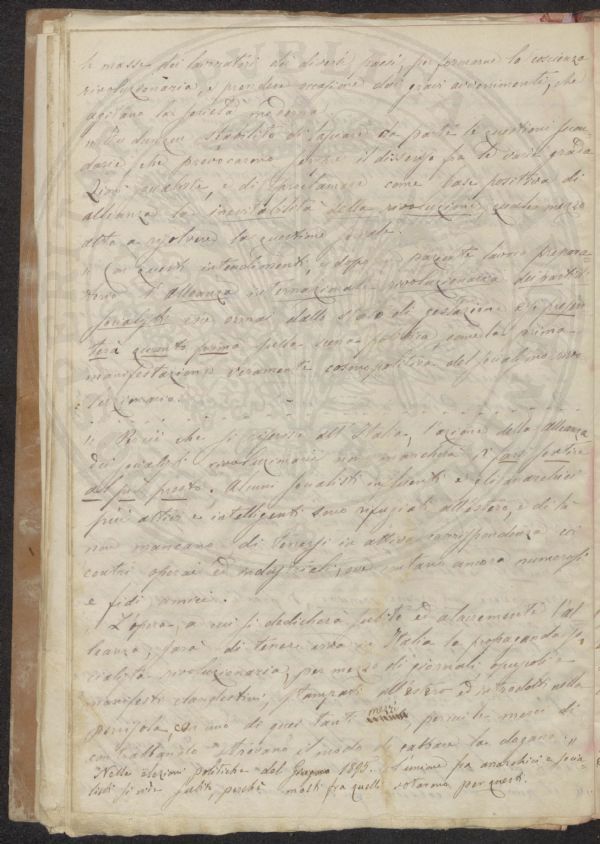 le masse dei lavoratori dei diversi paesi, per formarne la coscienza
rivoluzionaria e prendere occasione dai gravi avvenimenti, che
agitano la società moderna.
dunque stabilito di lasciare da parte le questioni secon-
darie, che provocarono sempre il dissenso fra le varie grada
zioni socialiste, e di proclamare come base positiva di
alleanza la inevitabilità della rivoluzione, quale mezzo
atto a risolvere la questione sociale.
" Con questi intendimenti, e dopo un paziente lavoro prepara
torio l'alleanza internazionale rivoluzionaria dei partiti
socialisti esce ormai dallo stato di gestazione e si presen
terà quanto prima sulla scena politica, come la prima
manifestazione veramente cosmopolitica del socialismo rivo
luzionario.
" Perciò che si riferisce all'Italia, l'azione della Alleanza
dei socialisti rivoluzionari non mancherà di farsi sentire
al più presto. Alcuni socialisti influenti e gli anarchici
più attivi e intelligenti sono rifugiati all'estero, e di là
non mancano di tenersi in attiva corrispondenza coi
centri operai ed industriali, ove contano ancora numerosi
e fidi amici.
" L'opera, a cui si dedicherà subito ed alacremente l'al
leanza, sarà di tenere viva in Italia la propaganda so
cialista rivoluzionaria, per mezzo di giornali, opuscoli e
manifesti clandestini stampati all'estero ed introdotti nella
penisola con uno di quei tanti mezzi, per cui le merci di
contrabbando trovano il modo di gabbare la dogana. "
Nelle elezioni politiche del Giugno 1895. L'unione fra anarchici e socia
listi si vide subito, perché molti fra quelli votarono per questi.